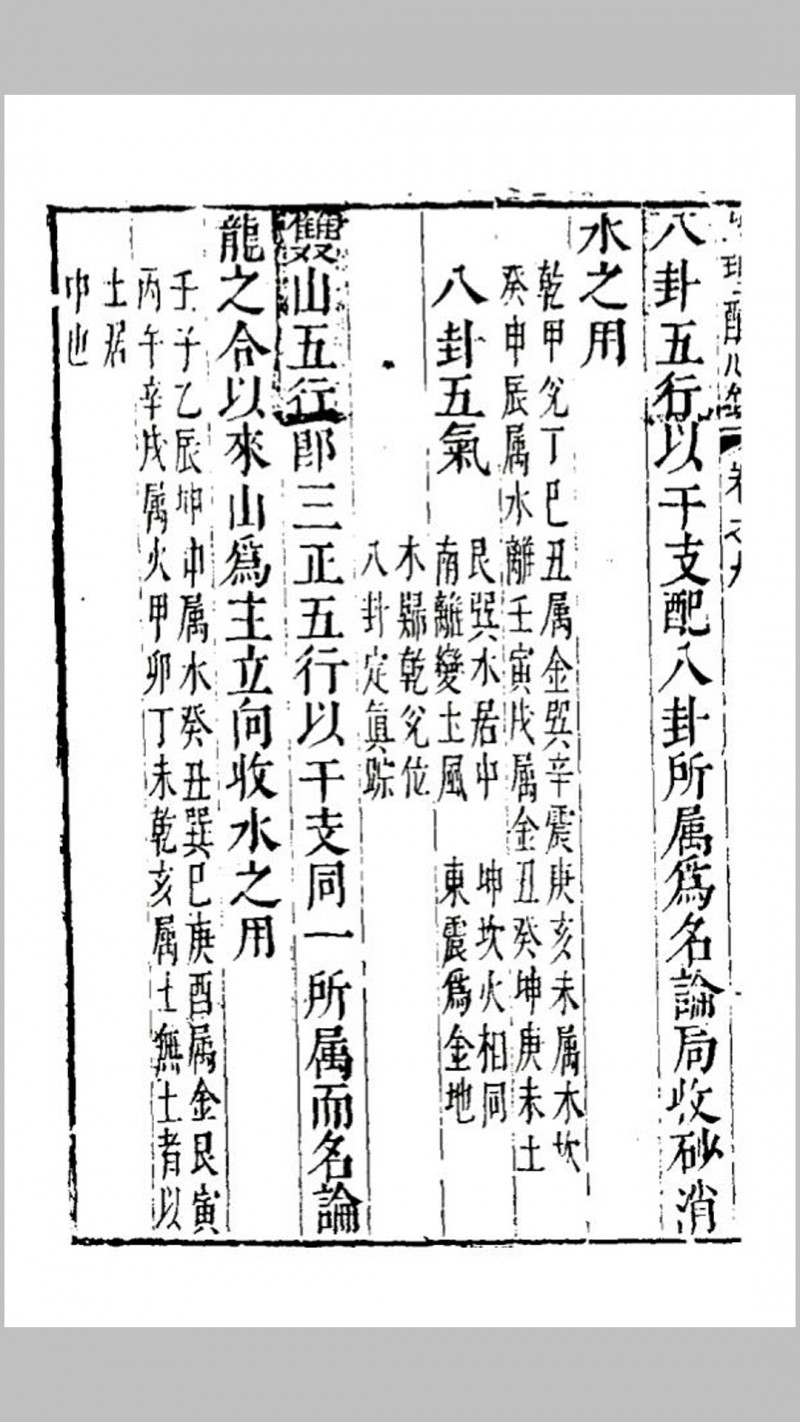 八卦五行以干支配八卦所属爲名論局收砂消
水之用
乾甲兌丁巳丑属金巽辛震庚亥未属木坎
癸申辰属水離壬寅戌属金丑癸坤庚未土
八卦五氣
艮巽水居中
南離變土風
木歸乾兌位
八卦定眞踪
坤坎火相同
東震爲金地
雙山五行卽三正五行以干支同一所属而名論
龍之合以來山爲主立向收水之用
壬子乙辰坤申属水癸丑巽巳庚酉属金艮寅
丙午辛戌属火甲卯丁未乾亥属土無土者以
土居
中也